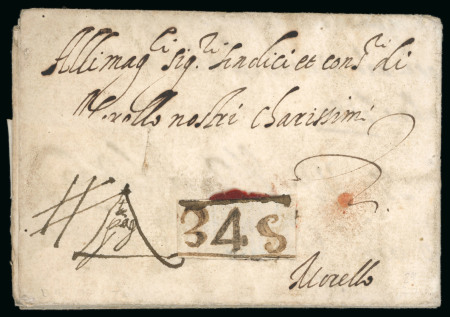 Alli mag.ci sig.ri sindici et cons.ri di
Verollo nostri charissimi
34 S
Verollo